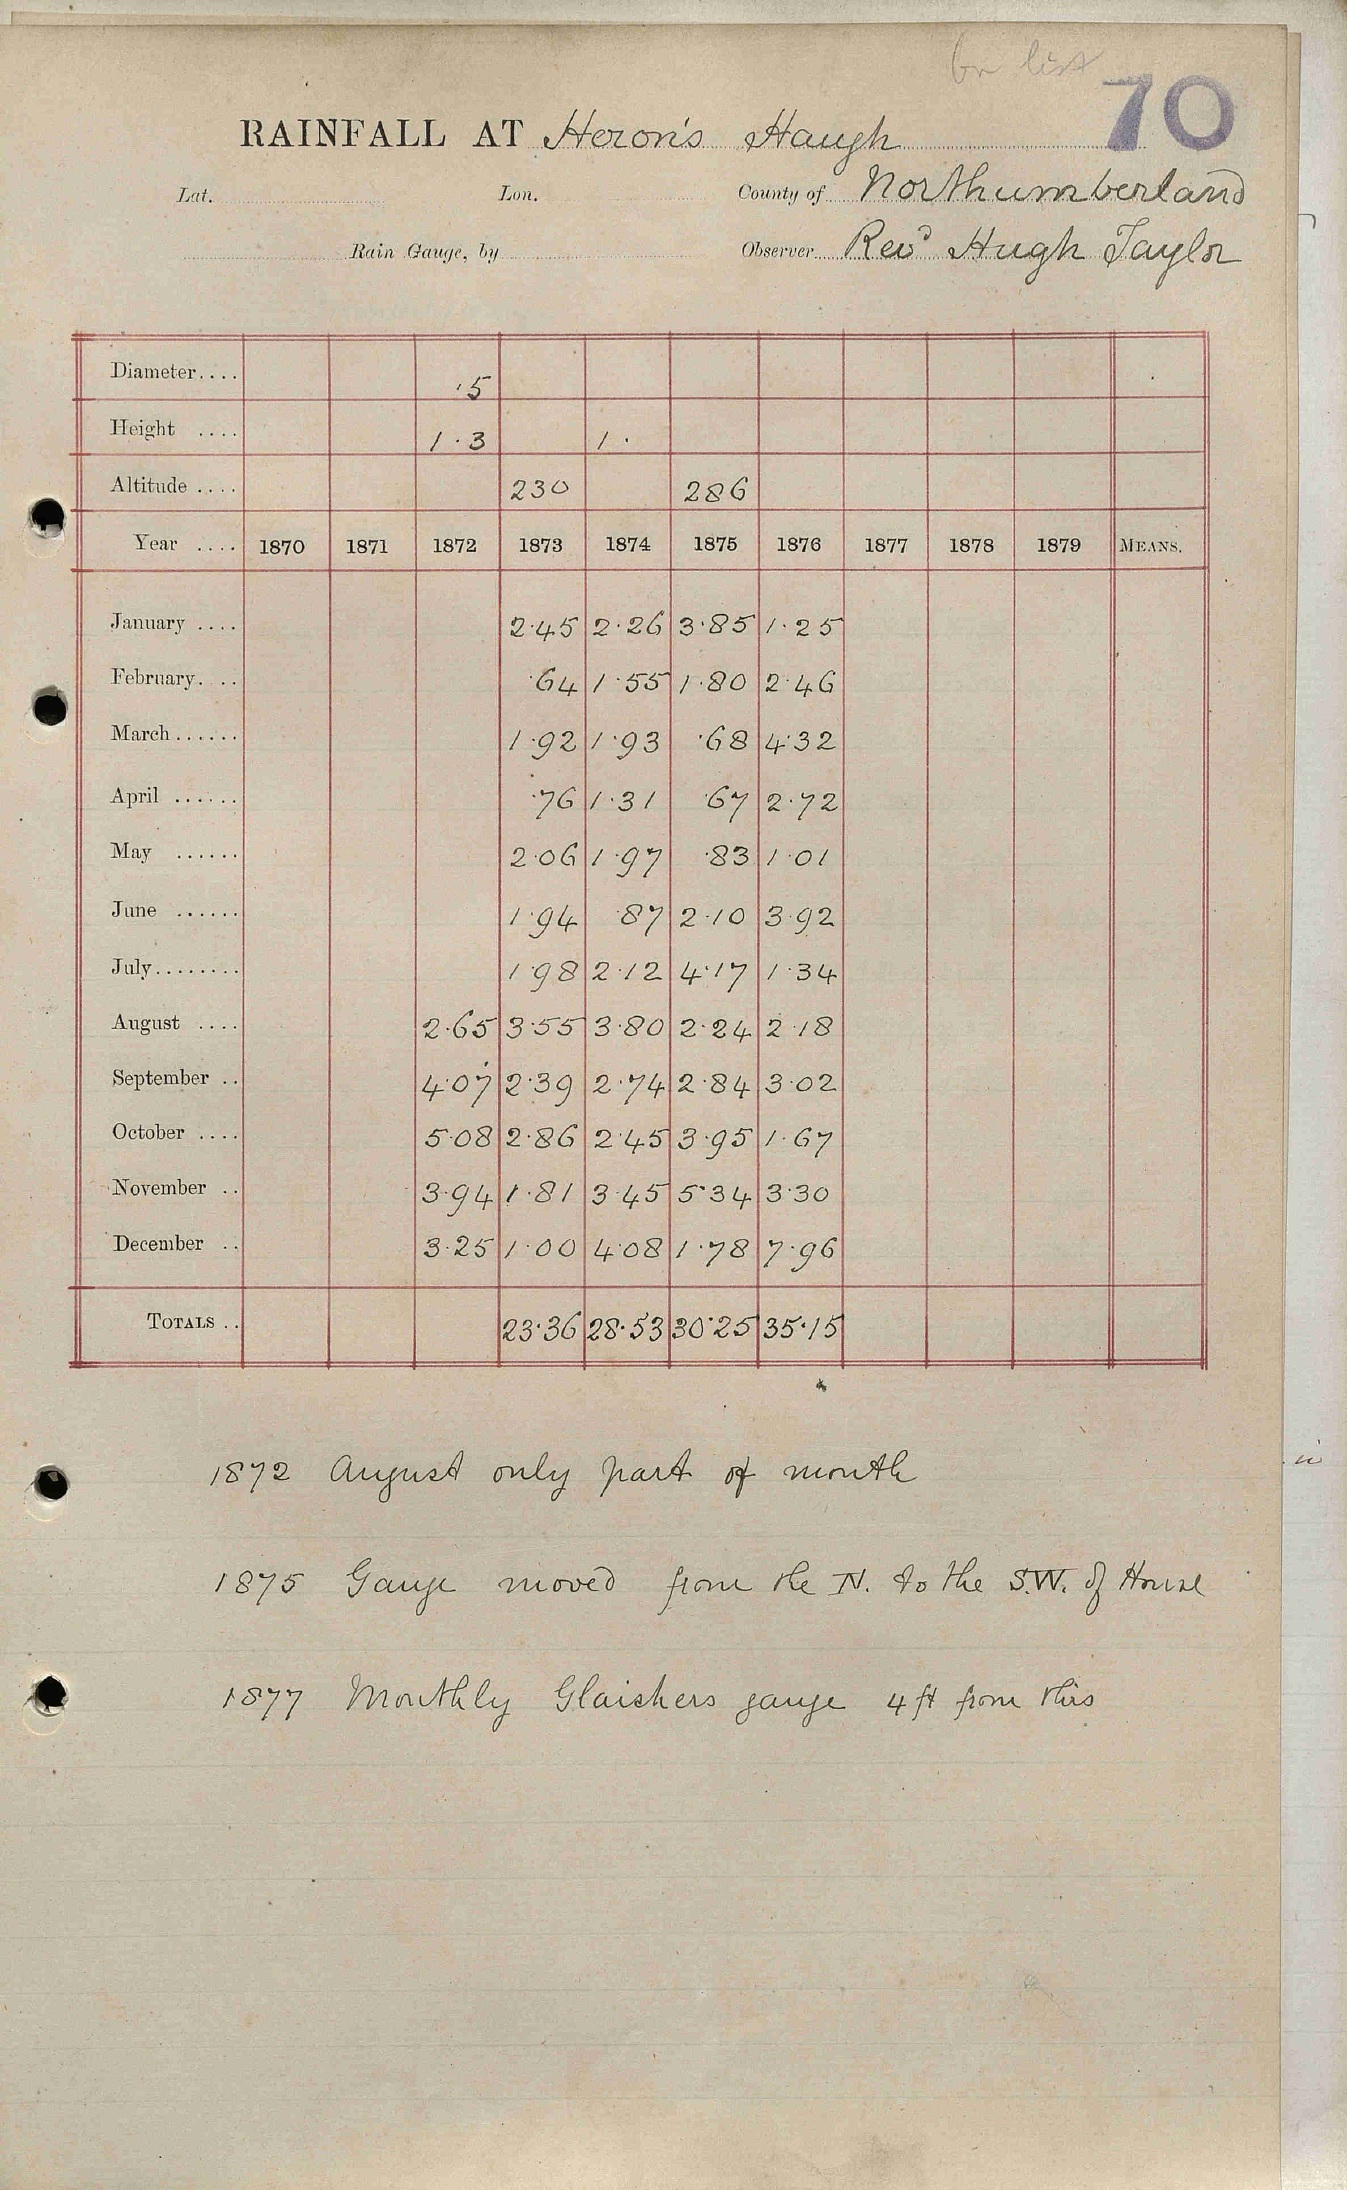 br list
70
RAINFALL AT Heron's Haugh
Lat. Lon. County of Northumberland
Rain Gauge, by Observer Revd Hugh Taylor
Diameter.... ·5
Height .... 1·3 1·
Altitude .... 230 286
Year .... 1870 1871 1872 1873 1874 1875 1876 1877 1878 1879 MEANS.
January .... 2·45 2·26 3·85 1·25
February. .. ·64 1·55 1·80 2·46
March ...... 1·92 1·93 ·68 4·32
April ...... ·76 1·31 ·67 2·72
May ...... 2·06 1·97 ·83 1·01
June ...... 1·94 ·87 2·10 3·92
July........ 1·98 2·12 4·17 1·34
August .... 2·65 3·55 3·80 2·24 2·18
September .. 4·07 2·39 2·74 2·84 3·02
October .... 5·08 2·86 2·45 3·95 1·67
November .. 3·94 1·81 3·45 5·34 3·30
December .. 3·25 1·00 4·08 1·78 7·96
TOTALS .. 23·36 28·53 30·25 35·15
1872 August only part of month
1875 Gauge moved from the N. to the S.W. of House
1877 Monthly Glaishers gauge 4 ft from this